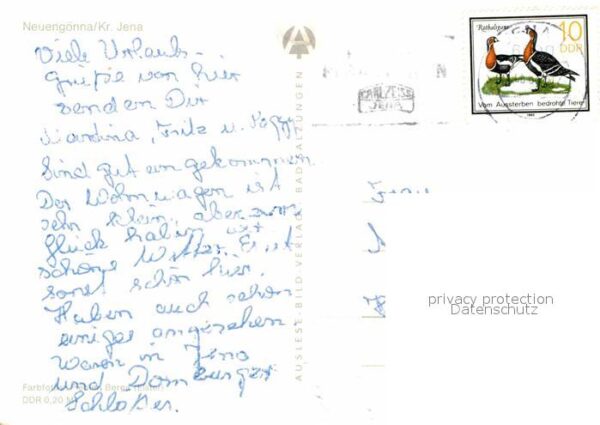 Neuengönna/Kr. Jena
Viele Urlaubs-
grüße von hier
senden Dir
Martina, Fritz u. Peggy
Sind gut angekommen
Der Wohnwagen ist
sehr klein, aber zum
Glück haben wir
schönes Wetter. Es ist
sonst schön hier.
Haben auch schon
einiges angesehen
waren in Jena
und Dornburger
Schlößer.
Farbfoto:
DDR 0,20 M
AUSLESE-BILD-VERLAG BAD SALZUNGEN
CARL ZEISS
JENA
Rothalsgans
10
DDR
Vom Aussterben bedrohte Tiere
1985
privacy protection
Datenschutz